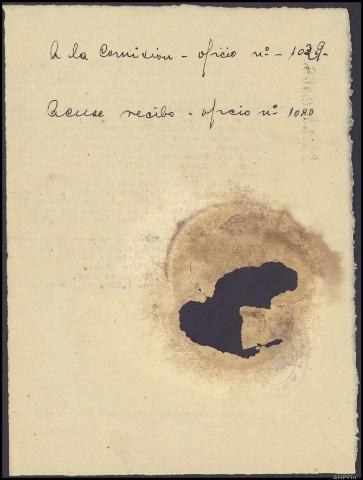 A la Comision - oficio nº - 1039-
Acuse recibo - oficio nº 1080